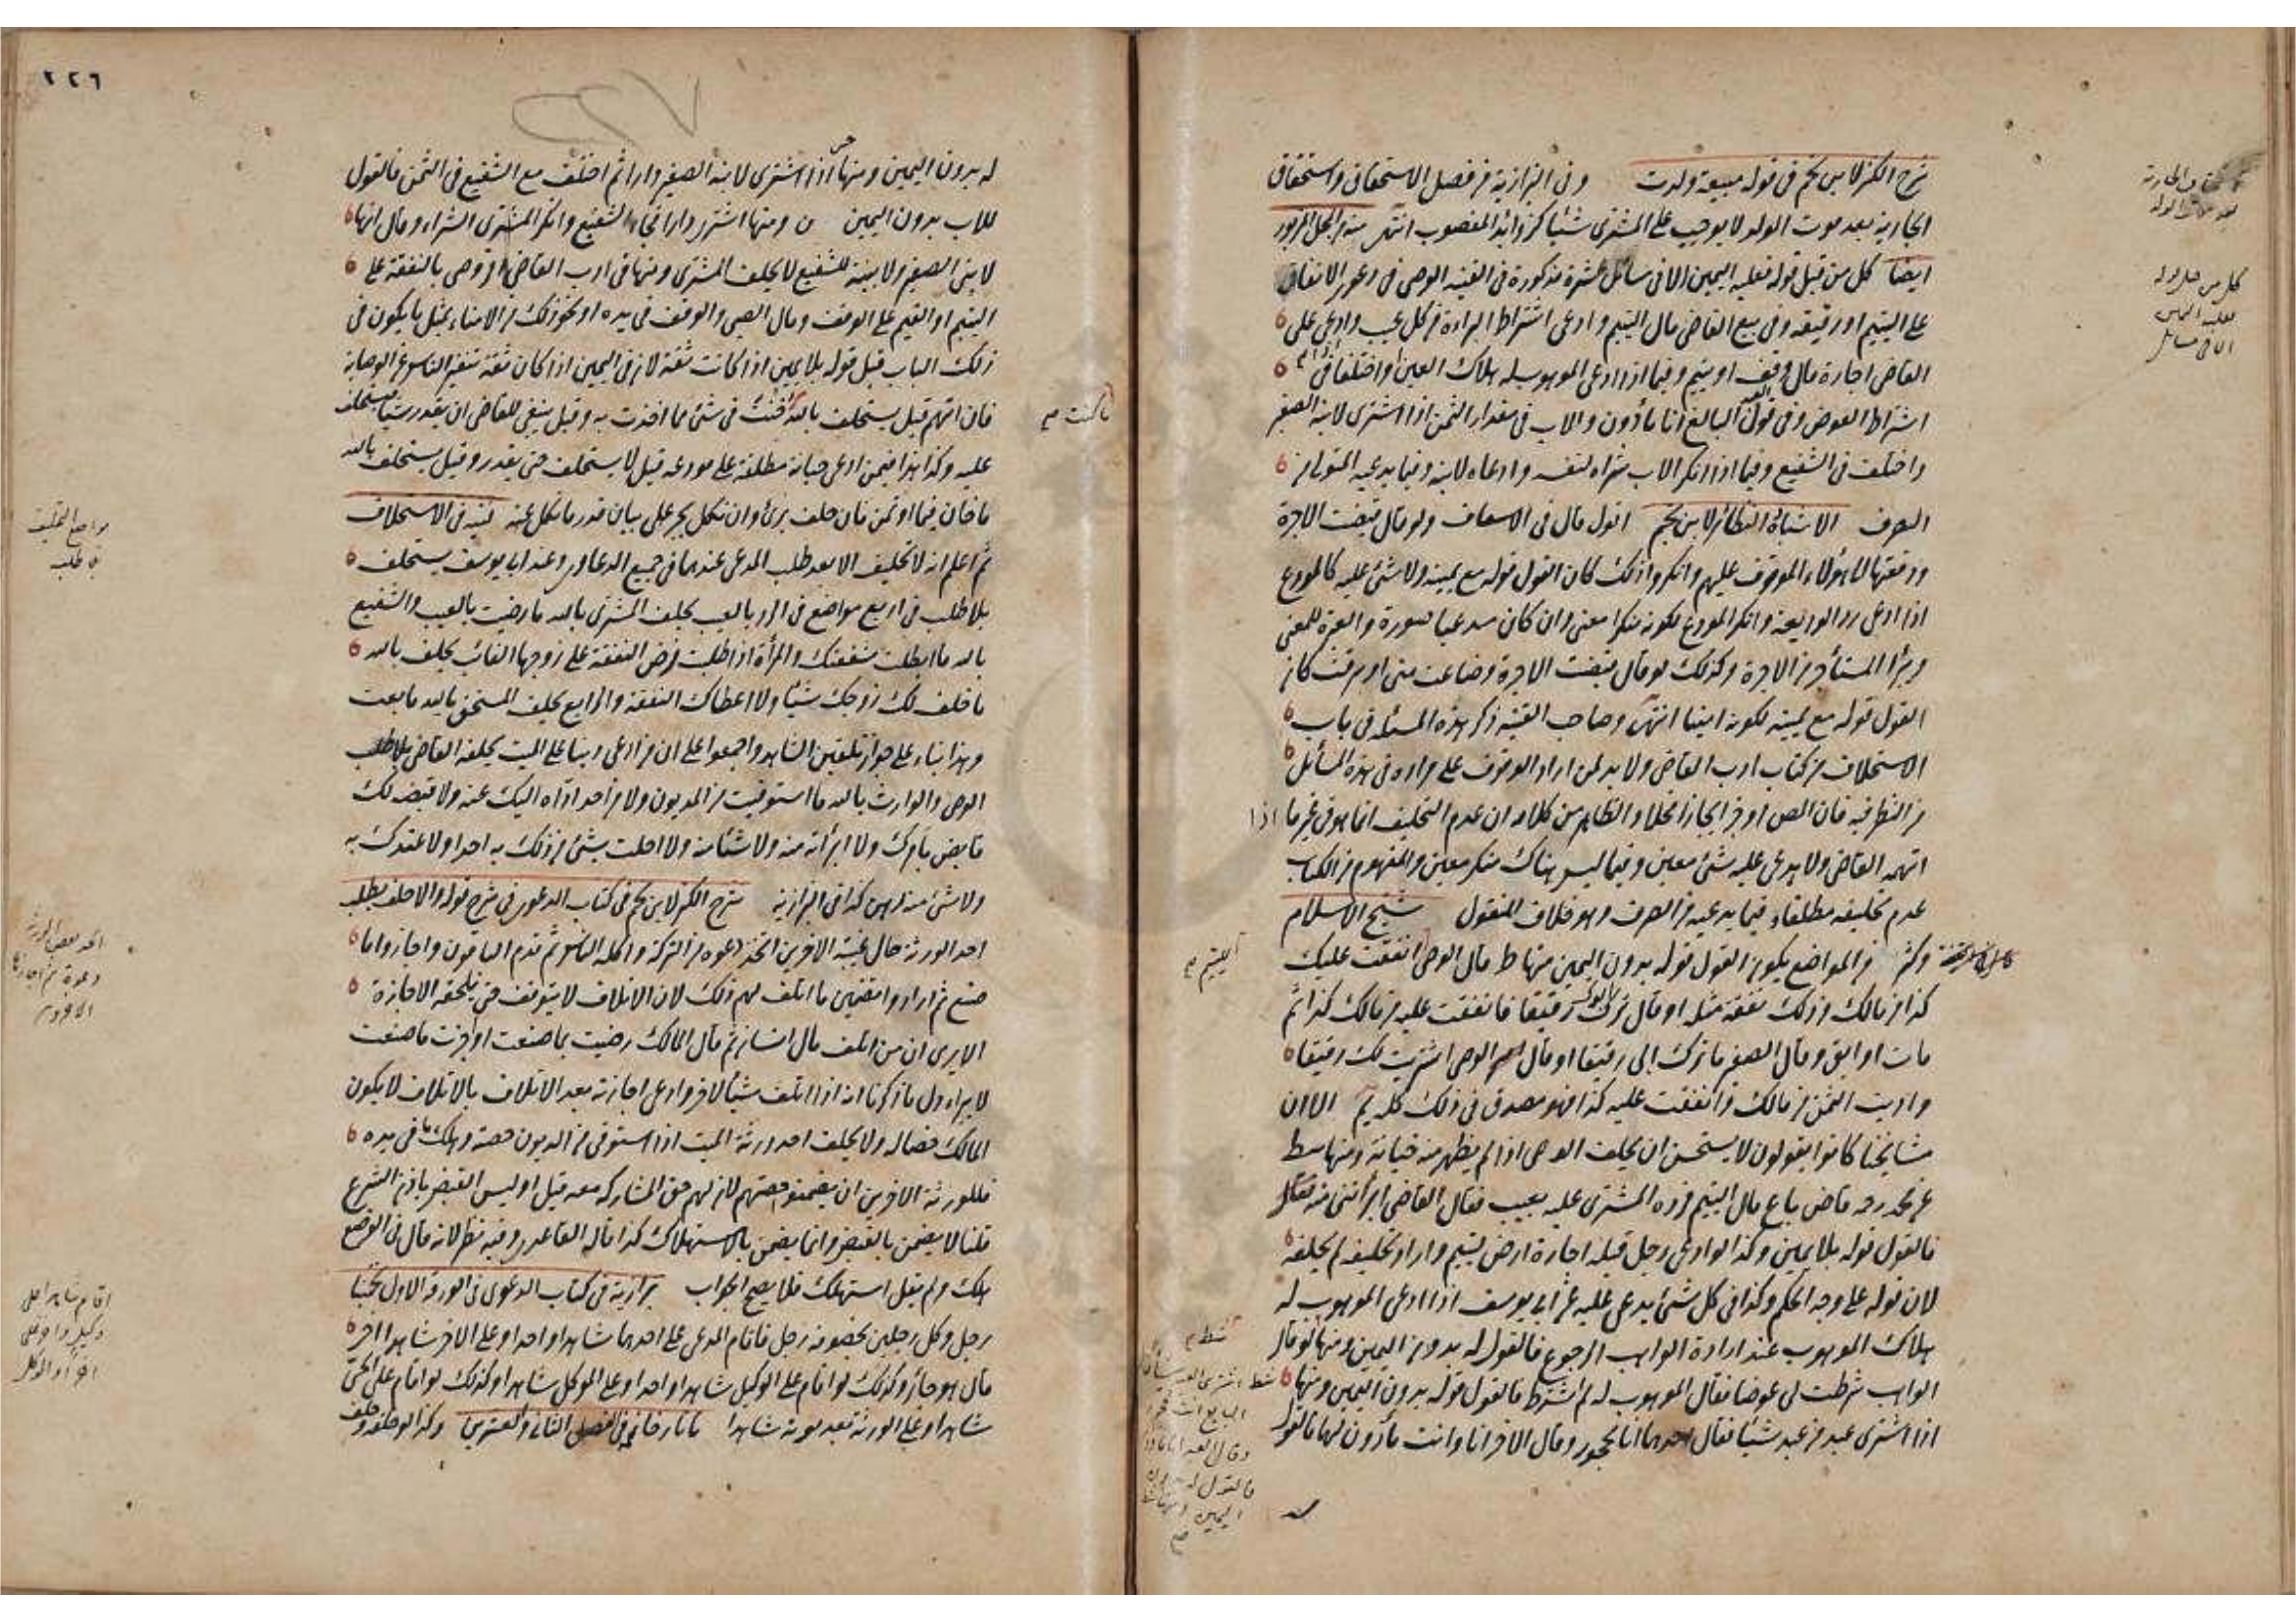 شرح الكنز لابن نجيم في قوله مبيعة ولدت وفي البزازية في فصل الاستحقاق واستحقاق
الجارية بعد موت الولد لا يوجب على المشتري شيئا كزوائد المغصوب انتهى من المحل المزبور
ايضا كل من قبل قوله فعليه اليمين الا في مسائل عشرة مذكورة في القنية الوصي في دعوى الانفاق
على اليتيم او رقيقه وفي بيع القاضي مال اليتيم وادعى اشتراط البراءة من كل عيب وادعي على
القاضي اجارة مال وقف او يتيم وفيما اذا ادعى الموهوب له هلاك العين او اختلفا في
اشتراط العوض وفي قول العبد البالغ انا مأذون والاب في مقدار الثمن اذا اشترى لابنه الصغير
واختلف في الشفيع وفيما اذا انكر الاب شراه لنفسه وادعاه لابنه وفيما يدعيه المتولي من
الصرف الاشباه والنظائر لابن نجيم اقول قال في الاسعاف ولو قال قبضت الاجرة
ودفعتها الى هؤلاء الموقوف عليهم وانكروا ذلك كان القول قوله مع يمينه ولا شئ عليه كالمودع
اذا ادعى رد الوديعة وانكر المودع لكونه منكرا معنى وان كان مدعيا صورة والعبرة للمعنى
ويبرأ المستأجر من الاجرة وكذلك لو قال قبضت الاجرة وضاعت مني او سرقت كان
القول قوله مع يمينه لكونه امينا انتهى وصاحب القنية ذكر هذه المسئلة في باب
الاستحلاف من كتاب ادب القاضي ولا بد لمن اراد الوقوف على مراده في هذه المسائل
من النظر فيه فان المص اوجز ايجازا مخلا والظاهر من كلامه ان عدم التحليف انما هو في غير ما اذا
اتهمه القاضي ولا يدعى عليه شئ معين وفيما ليس هناك منكر معين والمفهوم من الكتاب
عدم تحليفه مطلقا فيما يدعيه من الصرف وهو خلاف المنقول شيخ الاسلام
وكثير من المواضع يكون القول قوله بدون اليمين منها ط قال الوصي انفقت عليك
كذا من مالك وذلك نفقة مثله او قال ترك ابوك رقيقا فانفقت عليه من مالك كذا ثم
مات او ابق وقال الصغير ما ترك ابي رقيقا او قال الوصي اشتريت لك رقيقا
واديت الثمن من مالك وانفقت عليه كذا فهو مصدق في ذلك كله الا ان
مشايخنا كانوا يقولون لا يستحسن ان يحلف الوصي اذا لم يظهر منه خيانة ومنها
عن محمد رحمه قاض باع مال اليتيم فرده المشتري عليه بعيب فقال القاضي ابرأتني منه فقال
فالقول قوله بلا يمين وكذا لو ادعى رجل قبله اجارة ارض يتيم واراد تحليفه لم يحلفه
لان قوله على وجه الحكم وكذا في كل شئ يدعى عليه عن ابي يوسف اذا ادعى الموهوب له
هلاك الموهوب عند ارادة الواهب الرجوع فالقول له بدون اليمين ومنها لو قال
الواهب شرطت لي عوضا فقال الموهوب له لم اشترط فالقول قوله بدون اليمين ومنها
اذا اشترى عبد من عبد شيئا فقال احدهما انا محجور وقال الاخر انا وانت مأذون لهما فالقول
كل من قبل قوله
فعليه اليمين
الا في مسائل
٢٢٦
له بدون اليمين ومنها اذا اشترى لابنه الصغير دارا ثم اختلف مع الشفيع في الثمن فالقول
للاب بدون اليمين ومنها اشترى دارا فجاء الشفيع وانكر المشتري الشراء وقال انها
لابني الصغير ولا بينة للشفيع لا يحلف المشتري ومنها في ادب القاضي الوصي بالنفقة على
اليتيم او القيم على الوقف ومال الصبي والوقف في يده او نحو ذلك من الامناء بمثل ما يكون في
ذلك الباب قبل قوله بلا يمين اذا كانت ثقة لان في اليمين اذا كان ثقة تنفير الناس عن الوصاية
فان اتهم قيل يستحلف بالله خنت في شئ مما اخذت به وقيل ينبغي للقاضي ان يقدر شيئا يستحلف
عليه وكذا هذا فيمن ادعى خيانة مطلقة على مودعه قيل لا يستحلف حتى يقدر وقيل يستحلف بالله
ما خان فيما اؤتمن فان حلف برئ وان نكل يجبر على بيان قدر ما نكل عنه قنية في الاستحلاف
ثم اعلم انه لا تحليف الا بعد طلب المدعي عندهما في جميع الدعاوى وعند ابي يوسف يستحلف
بلا طلب في اربع مواضع في الرد بالعيب يحلف المشتري بالله ما رضيت بالعيب والشفيع
بالله ما ابطلت شفعتك والمرأة اذا طلبت فرض النفقة على زوجها الغائب يحلف بالله
ما خلف لك زوجك شيئا ولا اعطاك النفقة والرابع يحلف المستحق بالله ما بعت
وهذا بناء على جواز تلقين الشاهد واجمعوا على ان من ادعى دينا على الميت يحلفه القاضي بلا طلب
الوصي والوارث بالله ما استوفيت من المديون ولا من احد اداه اليك عنه ولا قبضه لك
قابض بامرك ولا ابرأته منه ولا شيئا منه ولا احلت بشئ من ذلك به احدا ولا عندك به
ولا شئ منه رهن كذا في البزازية شرح الكنز لابن نجيم في كتاب الدعوى في شرح قوله والا حلف بطلبه
احد الورثة حال غيبة الاخرين اتخذ دعوة من التركة واكله الناس ثم قدم الباقون واجازوا ما
صنع ثم ارادوا تضمين ما اتلف لهم ذلك لان الاتلاف لا يتوقف حتى يلحقه الاجازة
الا يرى ان من اتلف مال انسان ثم قال المالك رضيت بما صنعت او اجزت ما صنعت
لا يبرأ ودل ما ذكرنا انه اذا اتلف شيئا لاخر وادعى اجازته بعد الاتلاف بالاتلاف لا يكون
المالك خصما له ولا يحلف احد ورثة الميت اذا استوفى من الديون حصته وهلك ما في يده
فللورثة الاخرين ان يضمنوه حصتهم لان لهم حق المشاركة معه قيل اوليس القبض باذن الشرع
قلنا لا يضمن بالقبض وانما يضمن بالاستهلاك كذا قاله القاعدي وفيه نظر لانه قال في الوضع
هلك ولم يقل استهلك فلا يصح الجواب بزازية في كتاب الدعوى في الورقة الاولى تخمينا
رجل وكل رجلين بخصومة رجل فاقام المدعي على احدهما شاهدا واحدا وعلى الاخر شاهدا اخر
قال هو جائز وكذلك لو اقام على الوكيل شاهدا واحدا وعلى الموكل شاهدا وكذلك لو اقام على الحي
شاهدا وعلى الورثة بعد موته شاهدا تاتارخانية في الفصل الثاني والعشرين
مواضع التحليف
بلا طلب
اتخذ بعض الورثة
دعوة ثم اجازها
الاخرون
اقام شاهدا على
وكيل واخر على